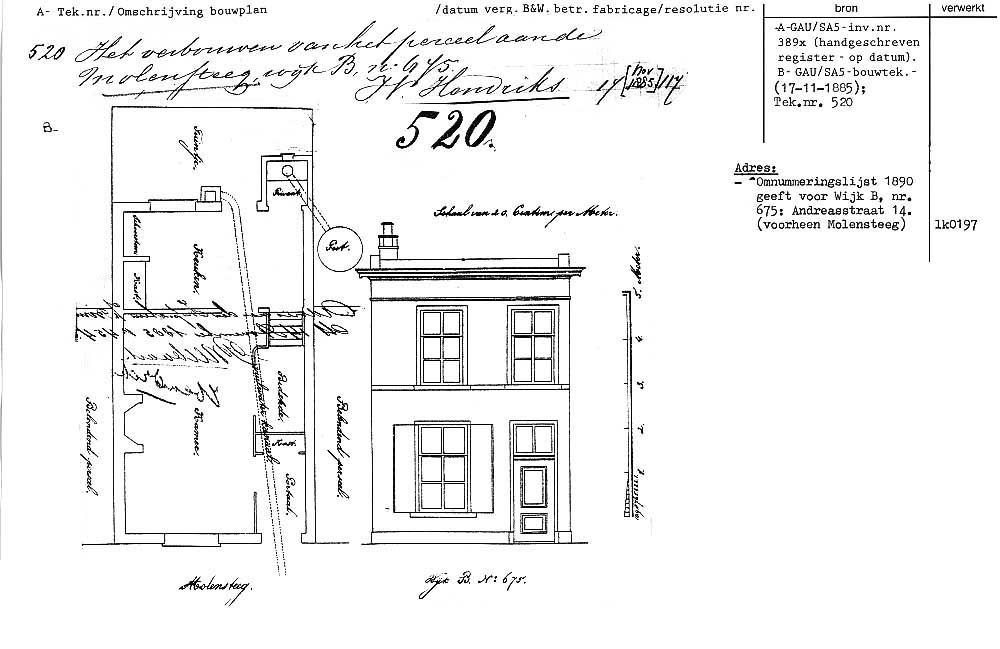 A- Tek.nr./ Omschrijving bouwplan /datum verg. B&W. betr. fabricage/resolutie nr. bron verwerkt
520 Het verbouwen van het perceel aan de
Molensteeg, wijk B, n: 675.
H. Hendriks 17 [nov 1885]/117
A-GAU/SA5-inv.nr.
389x (handgeschreven
register - op datum).
B- GAU/SA5-bouwtek.-
(17-11-1885);
Tek.nr. 520
B-
520.
Adres:
- Omnummeringslijst 1890
geeft voor Wijk B, nr.
675: Andreasstraat 14.
(voorheen Molensteeg) lk0197
Schaal van 20. Centim: per Meter.
Tuintje.
Privaat.
Put.
Keuken.
Kast.
Kamer.
Bedstede.
Kast.
Portaal.
Belendend perceel.
Belendend perceel.
5. Meter.
4.
3.
2.
1.
Molensteeg.
Wijk B. No: 675.